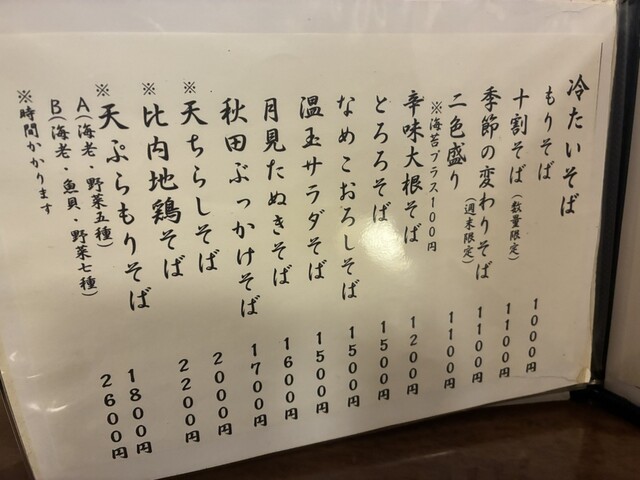 冷たいそば
もりそば 1000円
十割そば（数量限定） 1100円
季節の変わりそば（週末限定） 1100円
二色盛り 1100円
※海苔プラス100円
辛味大根そば 1200円
とろろそば 1500円
なめこおろしそば 1500円
温玉サラダそば 1500円
月見たぬきそば 1600円
秋田ぶっかけそば 1700円
※天ちらしそば 2000円
※比内地鶏そば 2200円
※天ぷらもりそば
A（海老・野菜五種） 1800円
B（海老・魚貝・野菜七種） 2600円
※時間かかります